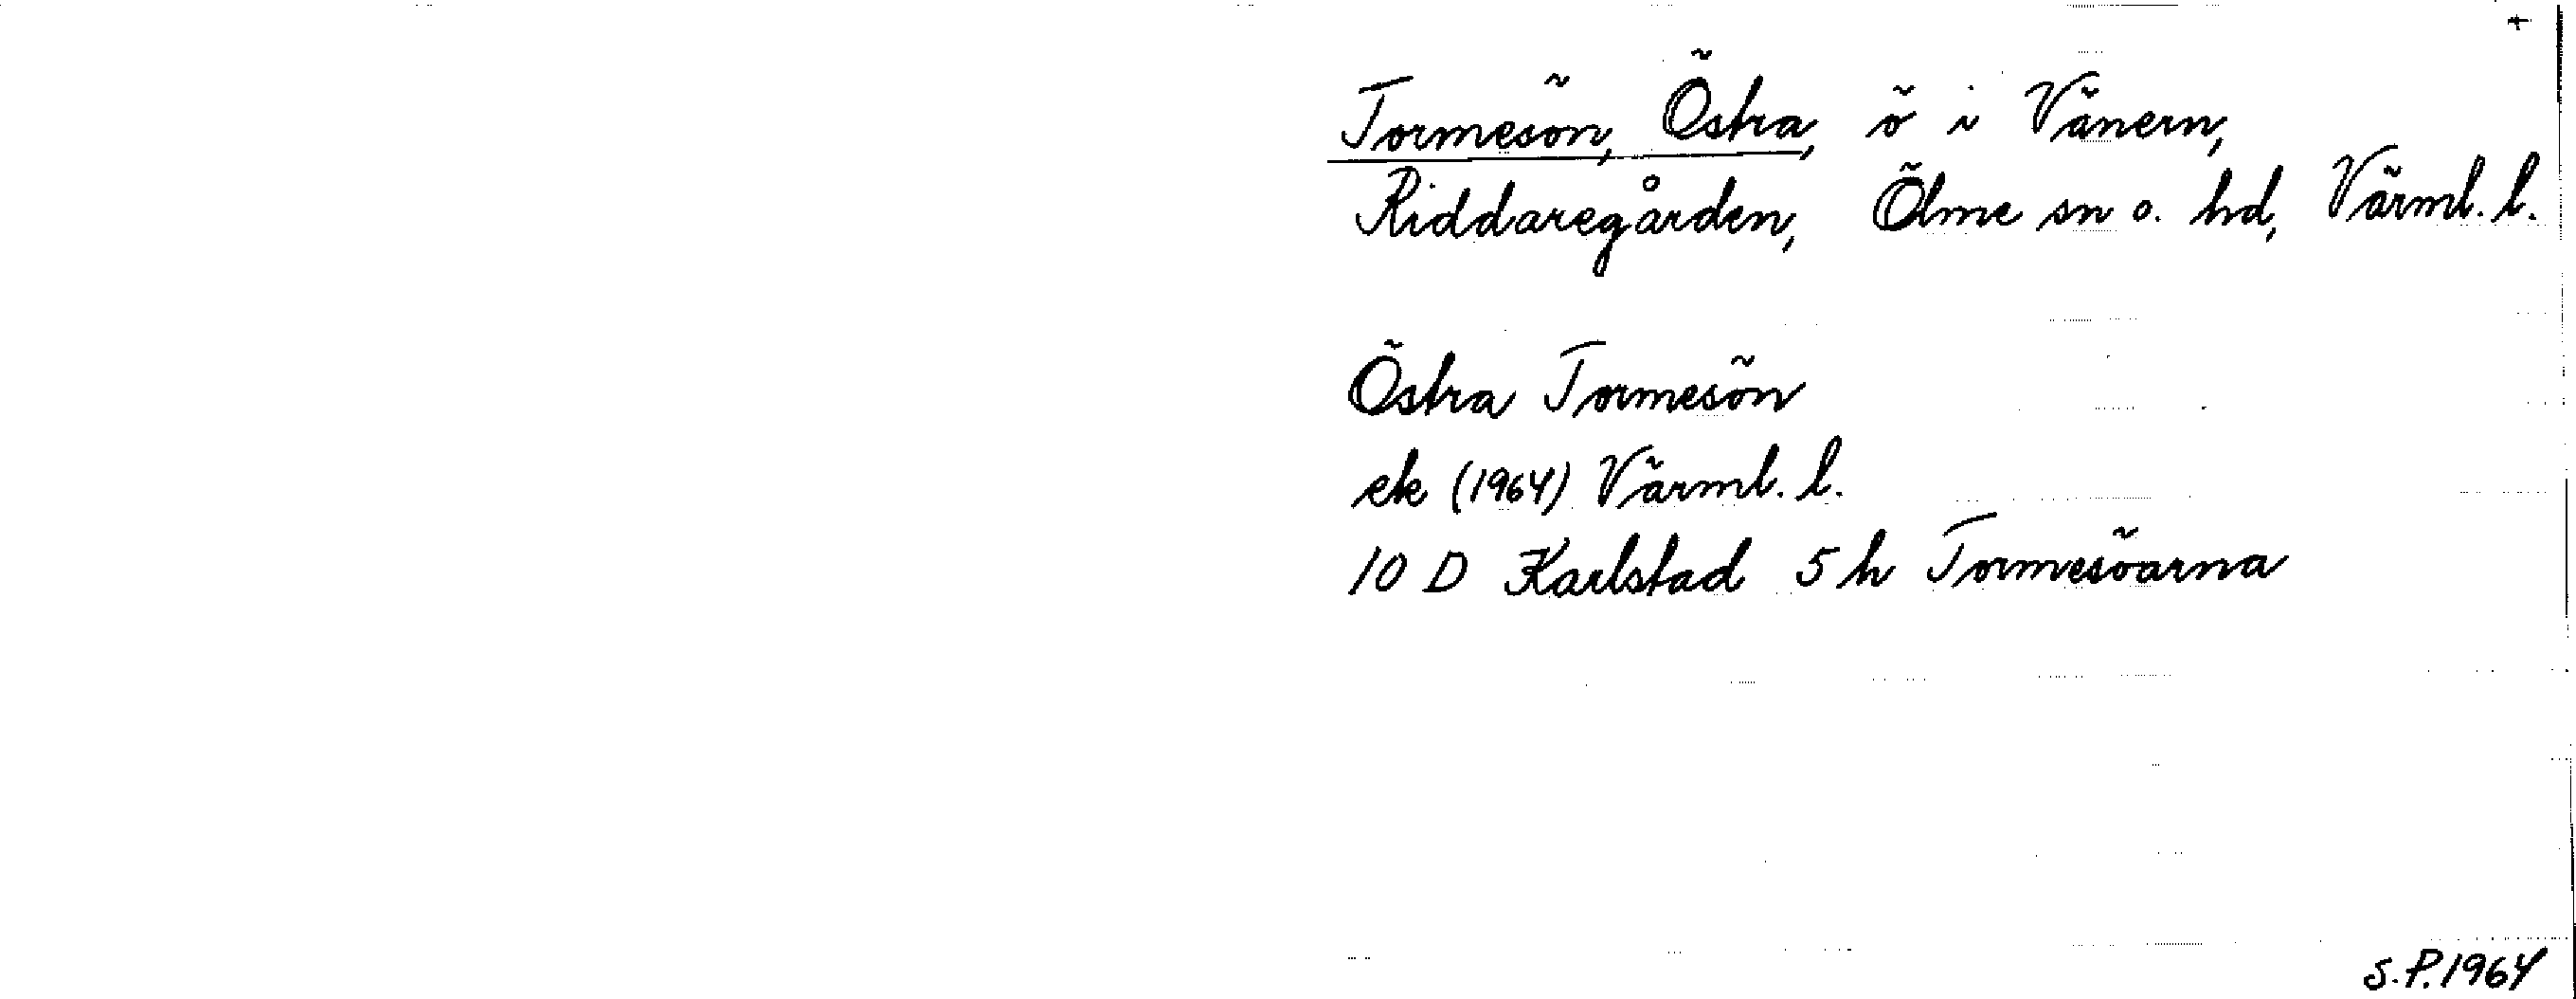 Tormesön, Östra, ö i Vänern,
Riddaregården, Ölme sn o. hd, Värml. l.
Östra Tormesön
ek (1964) Värml. l.
10 D Karlstad 5 h Tormesöarna
S.P. 1964